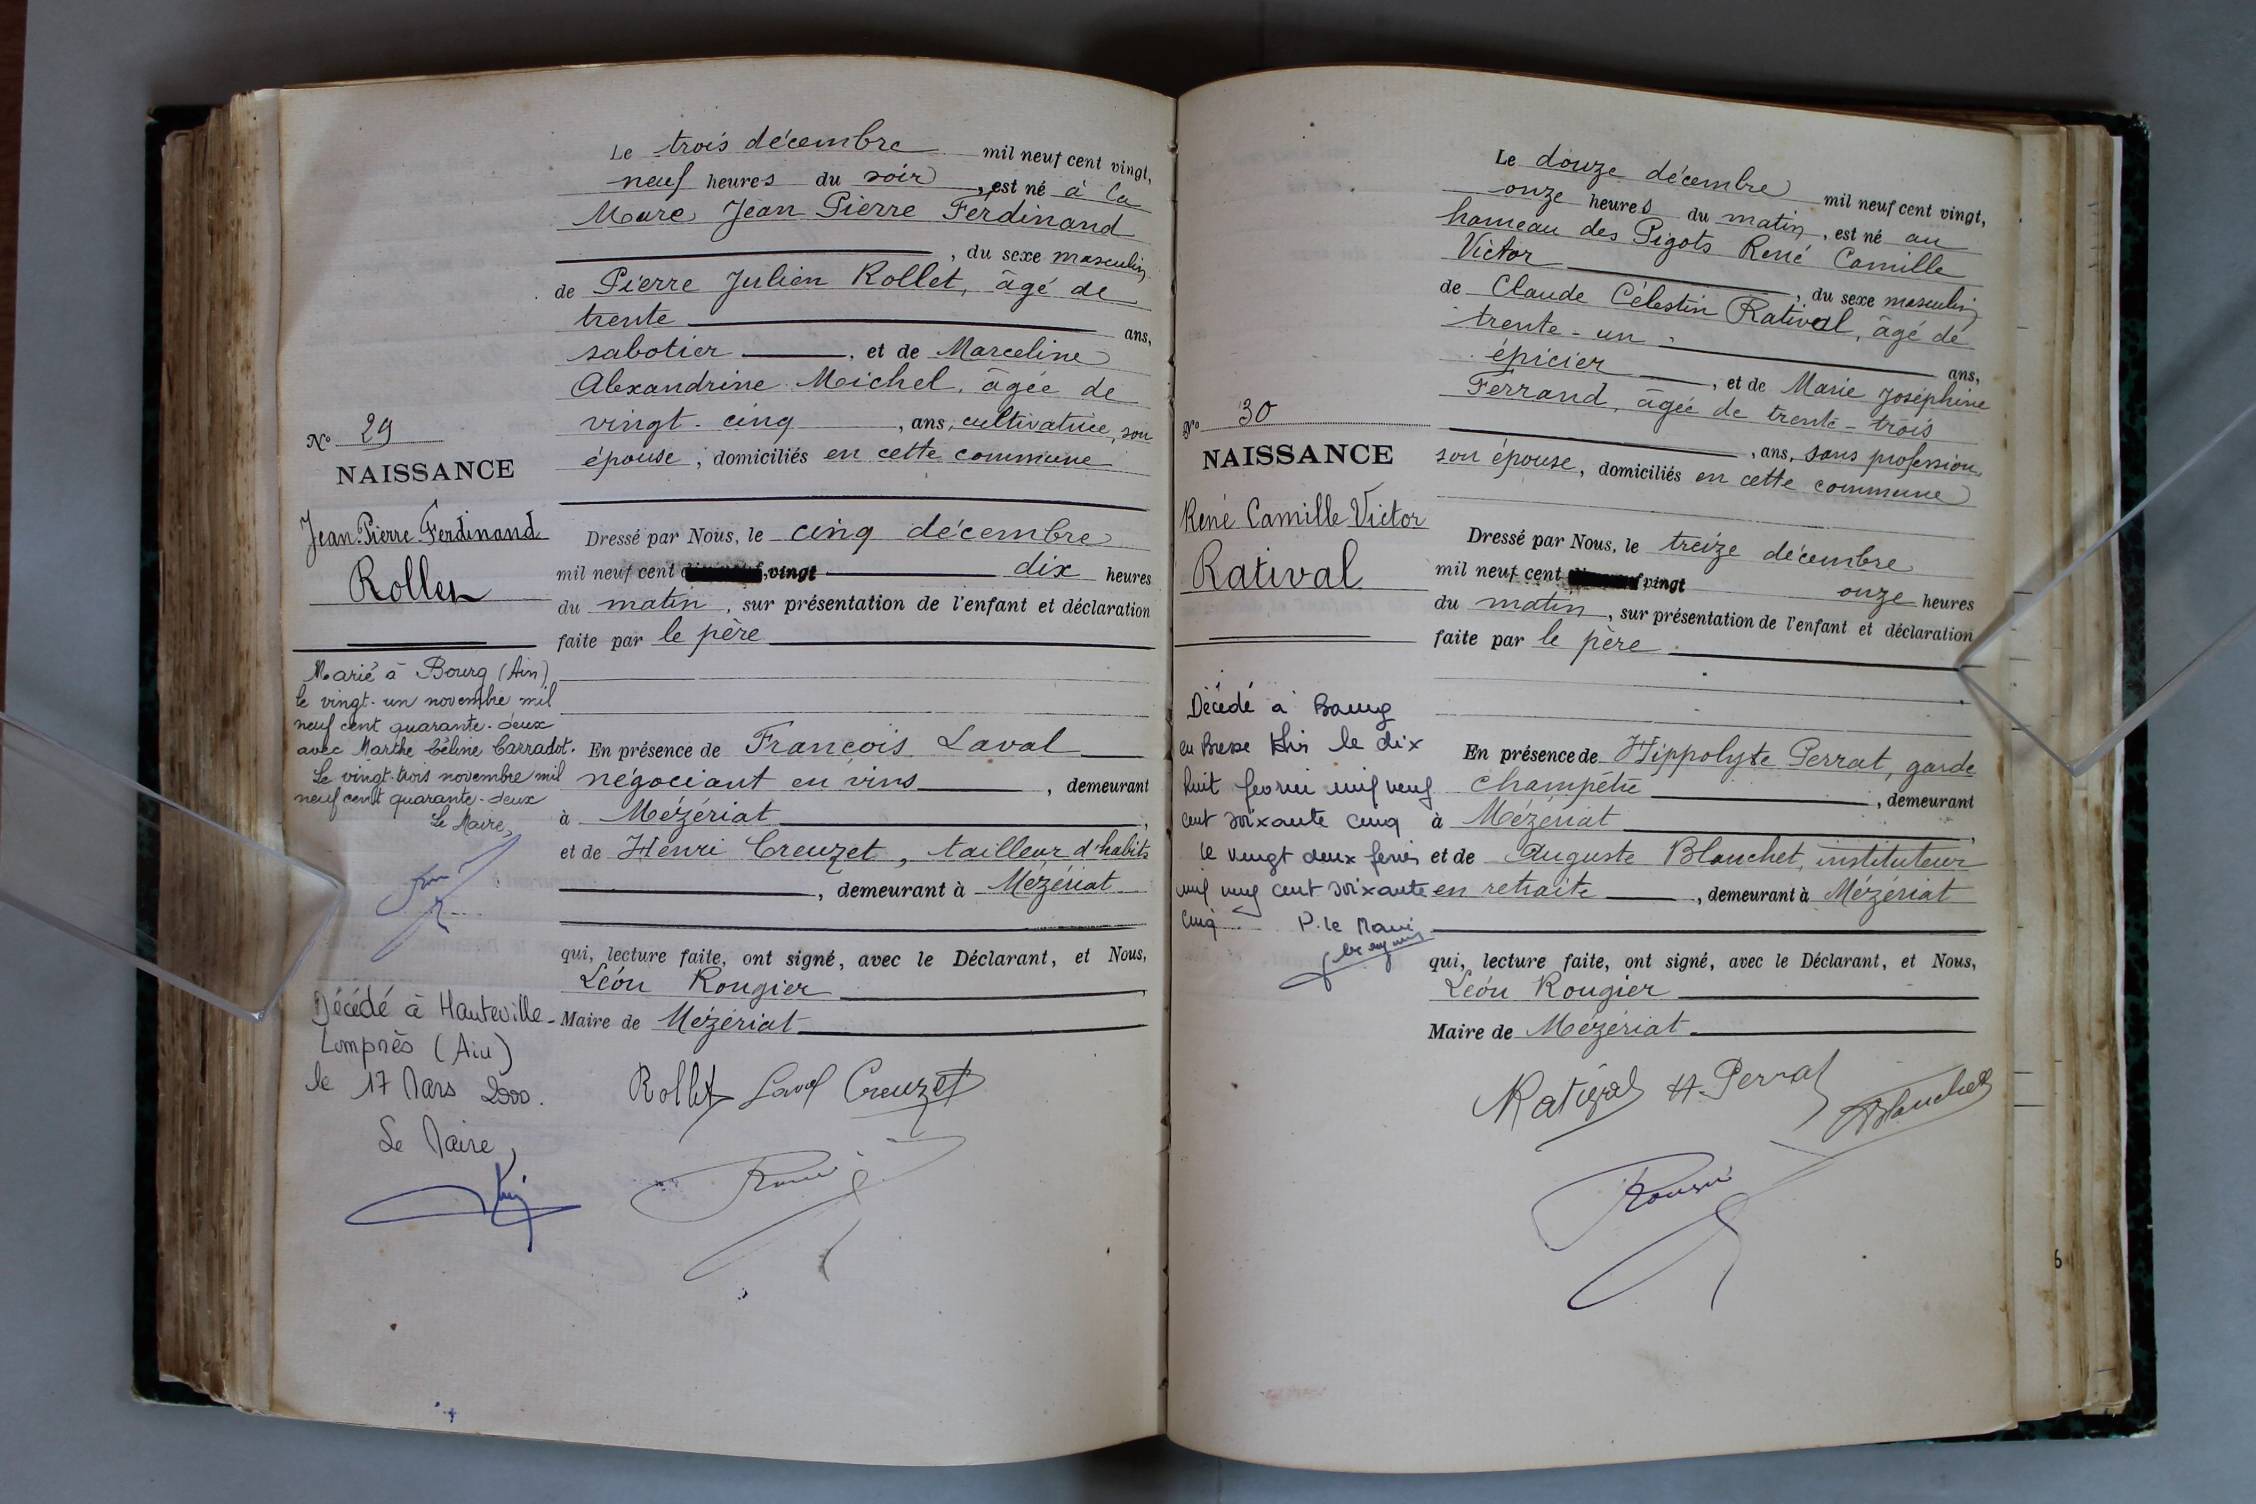 Le trois décembre mil neuf cent vingt,
neuf heures du soir, est né à la
Mare Jean Pierre Ferdinand
, du sexe masculin
de Pierre Julien Rollet, âgé de
trente ans,
sabotier, et de Marceline
Alexandrine Michel, âgée de
vingt-cinq, ans, cultivatrice, son
épouse, domiciliés en cette commune
No 29
NAISSANCE
Jean-Pierre Ferdinand
Rollet
Dressé par Nous, le cinq décembre
mil neuf cent vingt dix heures
du matin, sur présentation de l'enfant et déclaration
faite par le père
Marié à Bourg (Ain)
le vingt-un novembre mil
neuf cent quarante-deux
avec Marthe Céline Carradot.
Le vingt-trois novembre mil
neuf cent quarante-deux
Le Maire,
En présence de François Laval
négociant en vins, demeurant
à Mézériat,
et de Henri Creuzet, tailleur d'habits
, demeurant à Mézériat
qui, lecture faite, ont signé, avec le Déclarant, et Nous,
Léon Rougier
Maire de Mézériat
Décédé à Hauteville-
Lompnès (Ain)
le 17 Mars 2000.
Le Maire,
Rollet Laval Creuzet
Le douze décembre mil neuf cent vingt,
onze heures du matin, est né au
hameau des Pigots René Camille
Victor, du sexe masculin
de Claude Célestin Ratival, âgé de
trente-un ans,
épicier, et de Marie Joséphine
Ferrand, âgée de trente-trois
, ans, sans profession,
son épouse, domiciliés en cette commune
No 30
NAISSANCE
René Camille Victor
Ratival
Dressé par Nous, le treize décembre
mil neuf cent vingt onze heures
du matin, sur présentation de l'enfant et déclaration
faite par le père
Décédé à Bourg
en Bresse Ain le dix
huit fevrier mil neuf
cent soixante cinq
le vingt deux fevrier
mil neuf cent soixante
cinq P. le Maire
En présence de Hippolyte Perrat, garde
champêtre, demeurant
à Mézériat,
et de Auguste Blanchet, instituteur
en retraite, demeurant à Mézériat
qui, lecture faite, ont signé, avec le Déclarant, et Nous,
Léon Rougier
Maire de Mézériat
Ratival H. Perrat
ABlanchet
6